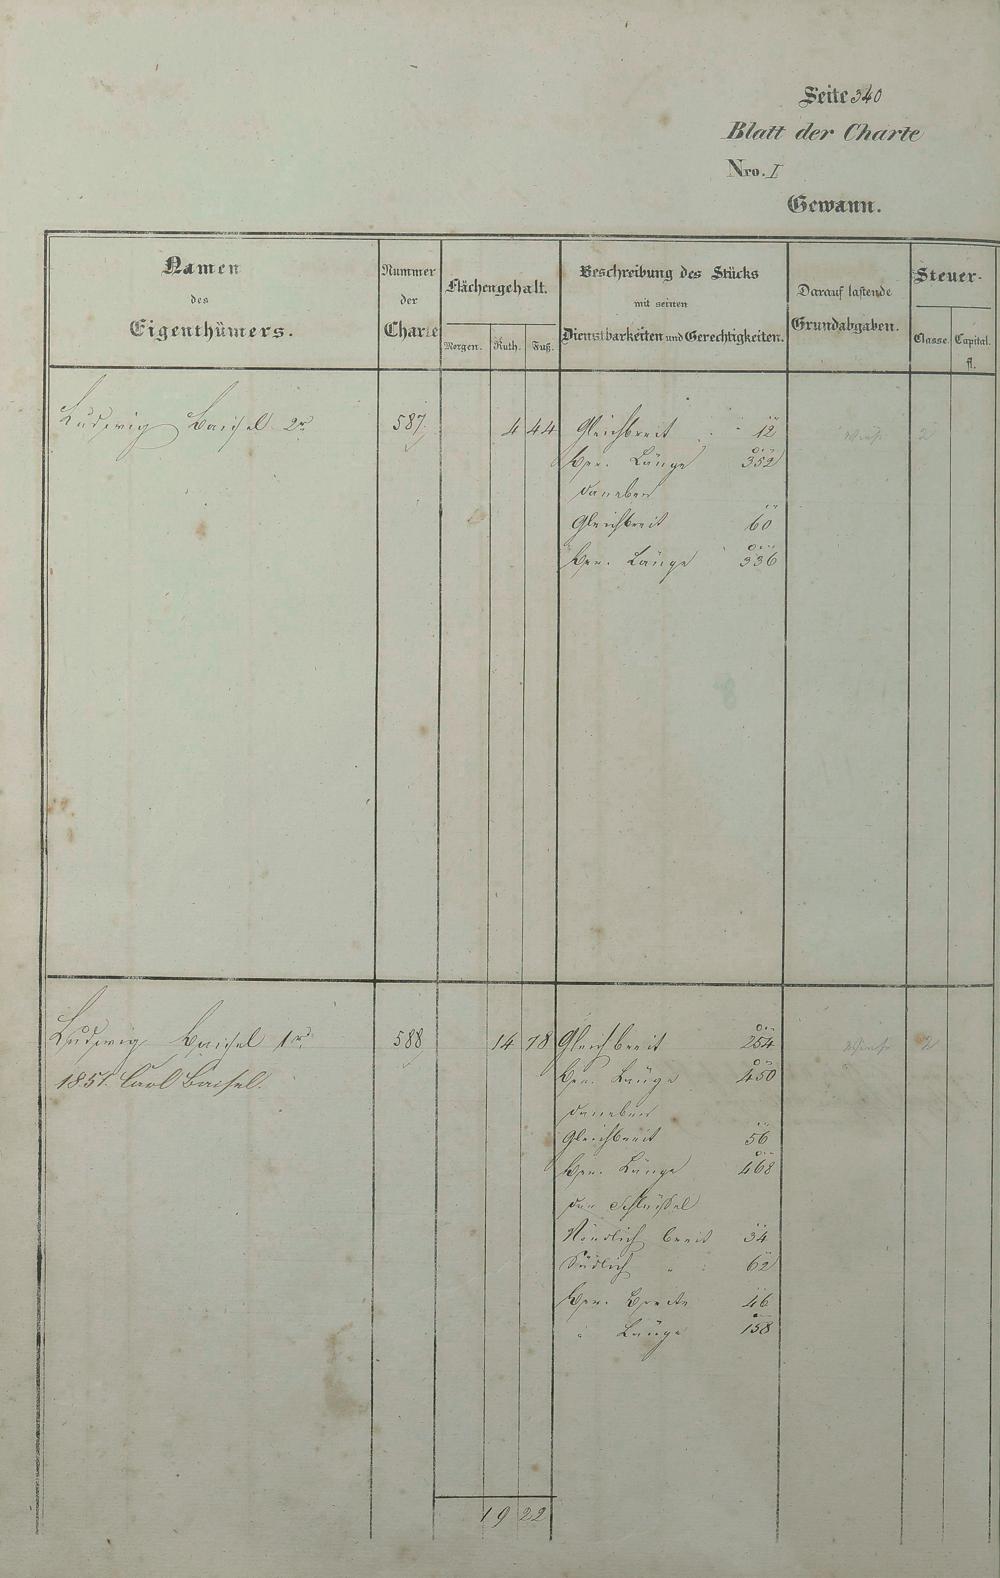 Seite 340
Blatt der Charte
Nro. I
Gewann.
Namen des Eigenthümers.
Nummer der Charte
Flächengehalt.
Morgen. Ruth. Fuß.
Beschreibung des Stücks mit seinen Dienstbarkeiten und Gerechtigkeiten.
Darauf lastende Grundabgaben.
Steuer-
Classe Capital. fl.
Ludwig Baisel 2r 587. 4 44 Gleichbreit 12 2
Ger. Länge 352
daneben
Gleichbreit 60
Ger. Länge 336
Ludwig Baisel 1r 588 14 78 Gleichbreit 254 2
1851. Carl Baisel. Ger. Länge 450
daneben
Gleichbreit 56
Ger. Länge 468
der Schlüssel
Nördlich breit 34
Südlich " 62
Ger. Breite 46
" Länge 158
19 22